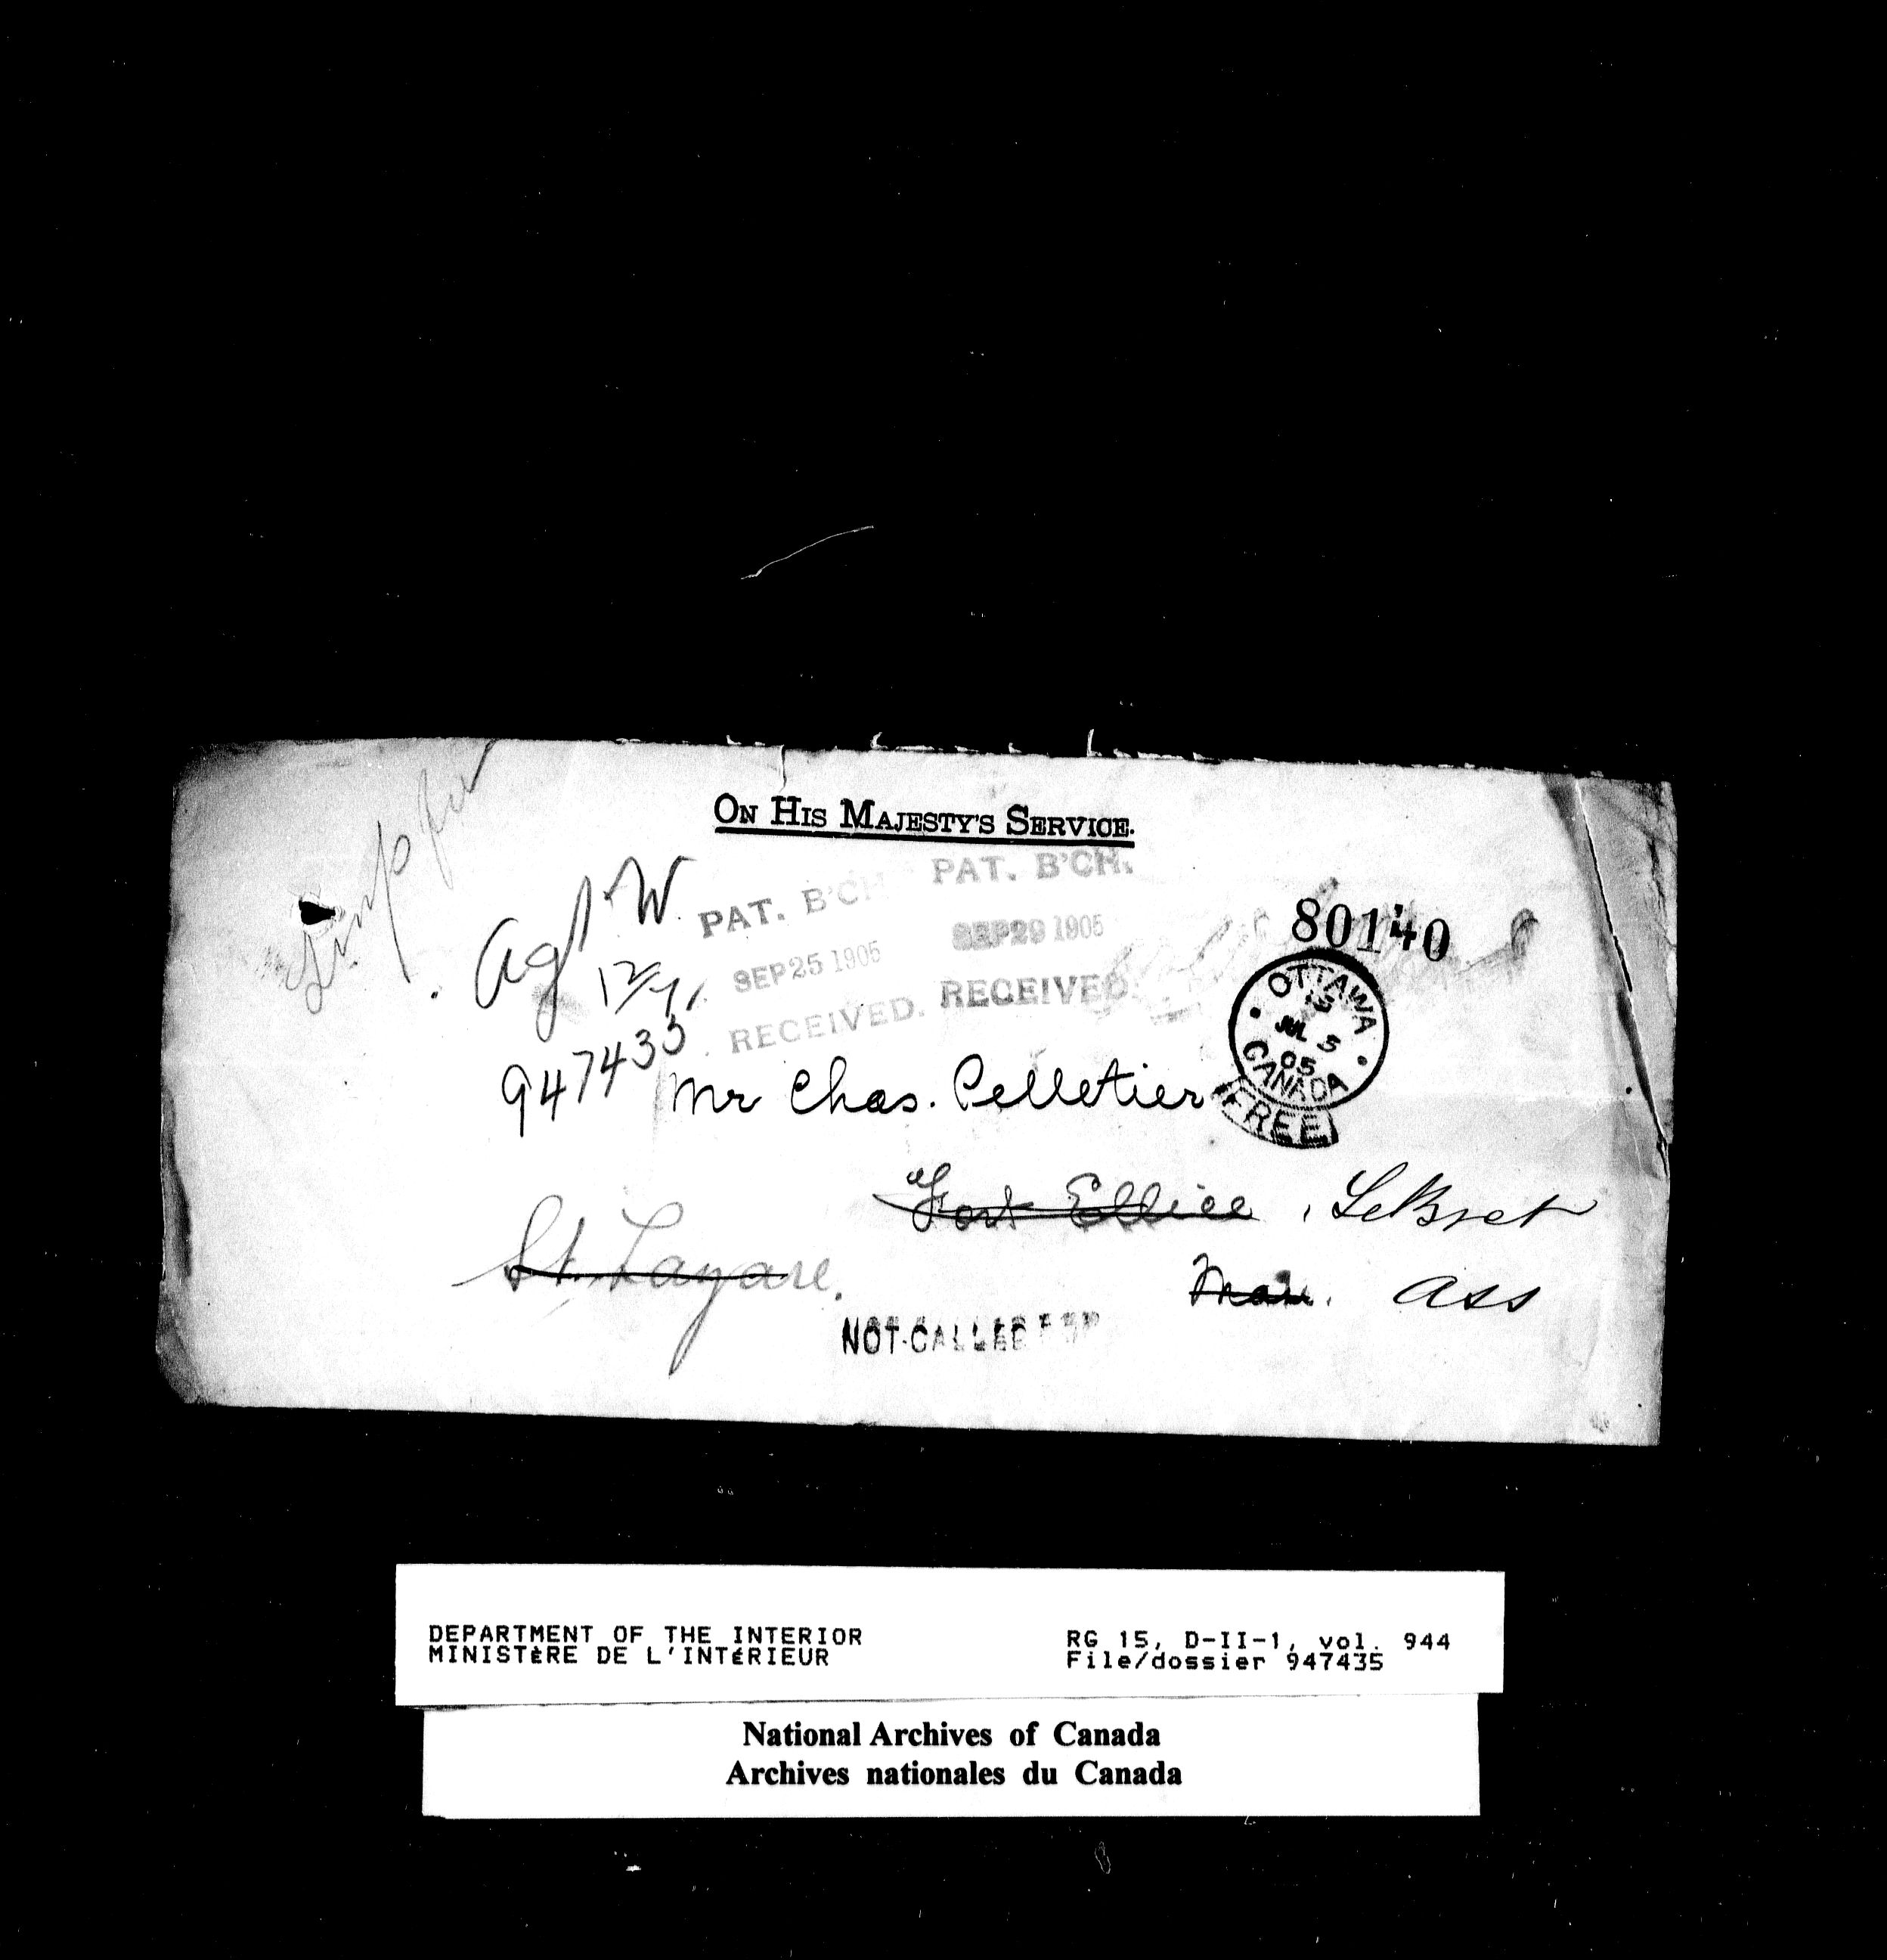 ON HIS MAJESTY'S SERVICE.
Agt W.
PAT. B'CH
SEP 25 1905
RECEIVED.
PAT. B'CH.
SEP 29 1905
RECEIVED
80140
OTTAWA
JUL 5
05
CANADA
FREE
947435
Mr Chas. Pelletier
Fort Ellice, LeBret
Man. Ass
St. Lazare.
NOT CALLED FOR
DEPARTMENT OF THE INTERIOR
MINISTÈRE DE L'INTÉRIEUR
RG 15, D-II-1, vol. 944
File/dossier 947435
National Archives of Canada
Archives nationales du Canada